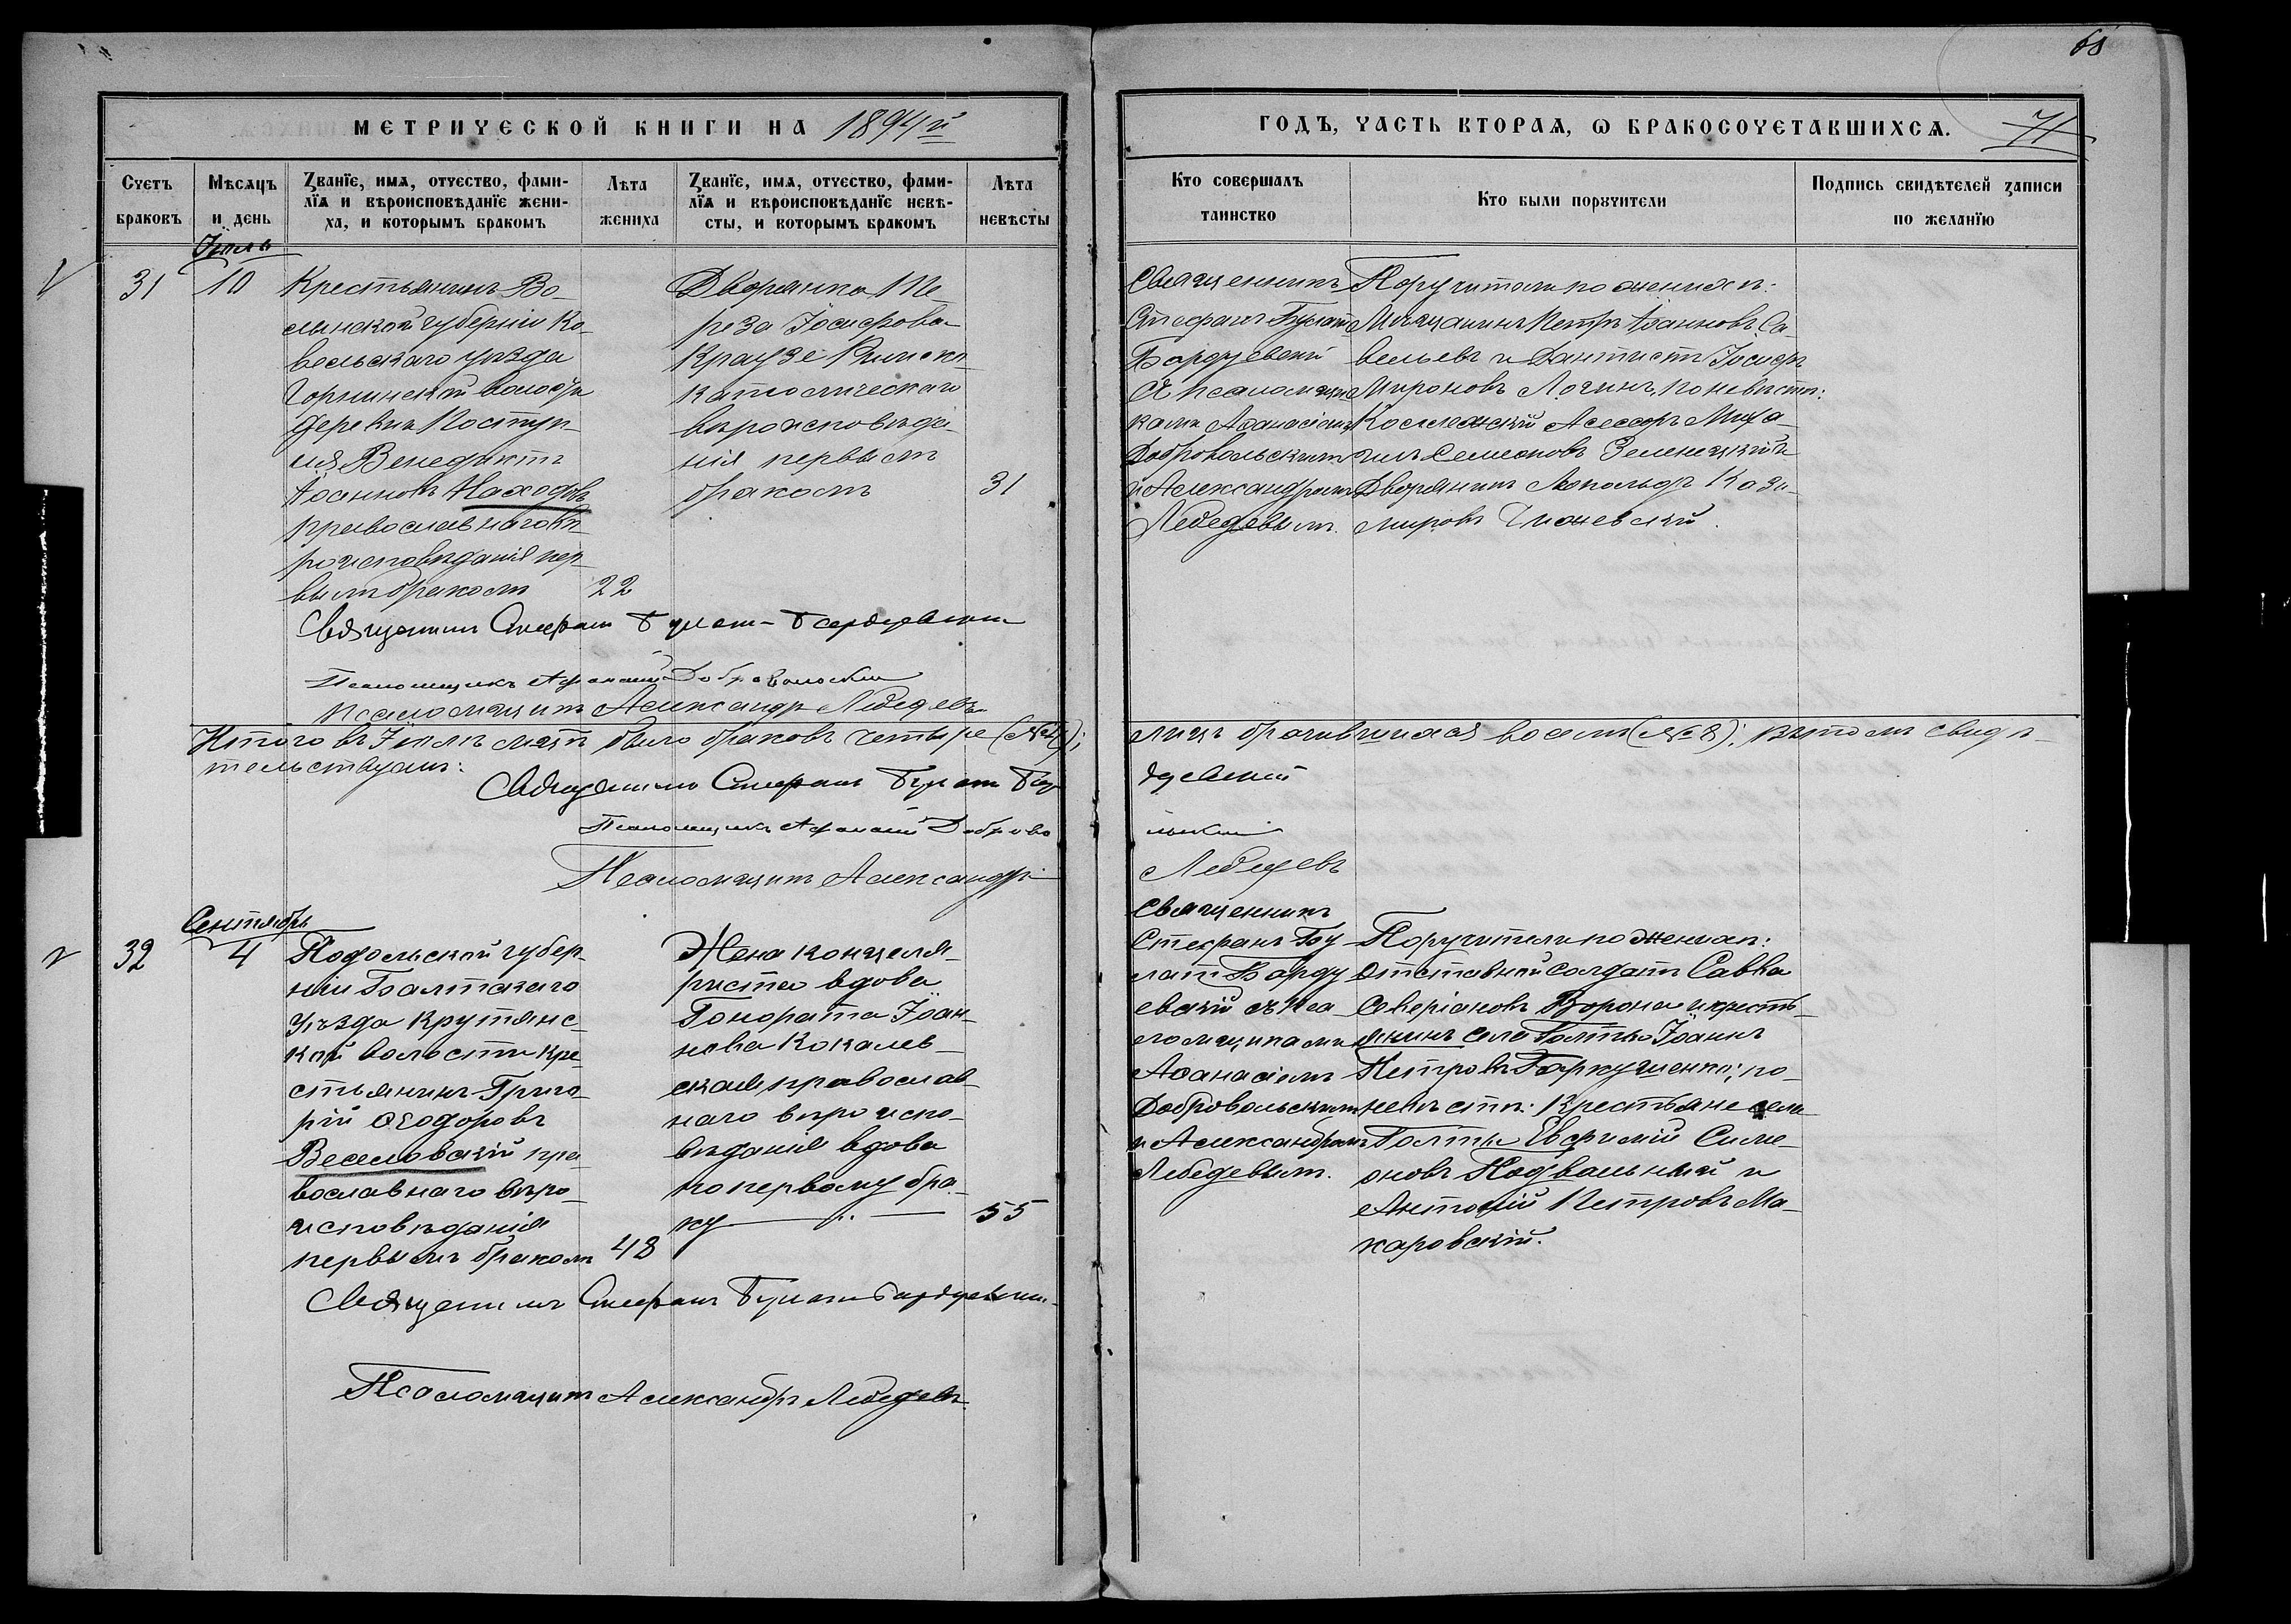 68
МЕТРИЧЕСКОЙ КНИГИ НА 1894й
ГОДЪ, ЧАСТЬ ВТОРАѦ, Ѡ БРАКОСОЧЕТАВШИХСѦ.
71
Счетъ браковъ
Мѣсѧцъ и день
Званїе, имѧ, отчество, фами-
лїѧ и вѣроисповѣданїе жени-
ха, и которымъ бракомъ
Лѣта жениха
Званїе, имѧ, отчество, фами-
лїѧ и вѣроисповѣданїе невѣ-
сты, и которымъ бракомъ
Лѣта невѣсты
Кто совершалъ таинство
Кто были порꙋчители
Подпись свидѣтелей записи по желанїю
Іюль
31
10
Крестьянинъ Во-
лынской губерніи Ко-
вельскаго уѣзда
волости
деревни
Венедиктъ
Іоанновъ Находовъ
православнаго вѣ-
роисповѣданія пер-
вымъ бракомъ
22
Дворянка Те-
реза Іосифова
Краузе Римско
католическаго
вѣроисповѣда-
нія первымъ
бракомъ
31
Священникъ
Стефанъ Булатъ
Бордуевскій
съ псаломщи-
ками Аѳанасіемъ
Добровольскимъ
и Александромъ
Лебедевымъ.
Поручители по женихѣ:
Мѣщанинъ Петръ Іоанновъ Са-
вельевъ и Дантистъ Іосифъ
Мироновъ Логинъ, по невѣстѣ:
Коллежскій Асессоръ Миха-
илъ Семеоновъ Зеленецкій и
Дворянинъ Леопольдъ Кази-
мировъ
Священникъ Стефанъ Булатъ-Бордуевскій
Псаломщикъ Афанасій Добровольскій
Псаломщикъ Александръ Лебедевъ
Итого въ Іюлѣ мцѣ было браковъ четыре (№4);
лицъ брачившихся восемь (№8); въ томъ свидѣ-
тельствуемъ:
Священникъ Стефанъ Булатъ Бор
дуевскій
Псаломщикъ Афанасій Доброво
льскій
Псаломщикъ Александръ
Лебедевъ
Сентябрь
32
4
Подольской губер-
ніи Балтскаго
уѣзда Крутянс-
кой волости кре-
стьянинъ Григо-
рій Ѳеодоровъ
Веселовскій пра-
вославнаго вѣро-
исповѣданія
первымъ бракомъ
48
Жена канцеля-
риста вдова
Гонората Іоан-
нова Ковалев-
ская православ-
наго вѣроиспо-
вѣданія вдова
по первому бра-
ку
55
Священникъ
Стефанъ Бу
латъ Борду
евскій съ пса-
ломщиками
Аѳанасіемъ
Добровольскимъ
и Александромъ
Лебедевымъ.
Поручители по женихѣ:
Отставной солдатъ Савва
Северіановъ Ворона и кресть-
янинъ села Голты Іоаннъ
Петровъ Гаркушенко; по
невѣстѣ: Крестьяне села
Голты Евфимій Симе-
оновъ Подвальный и
Антоній Петровъ Ма-
каровскій.
Священникъ Стефанъ Булатъ Бордуевскій
Псаломщикъ Александръ Лебедевъ